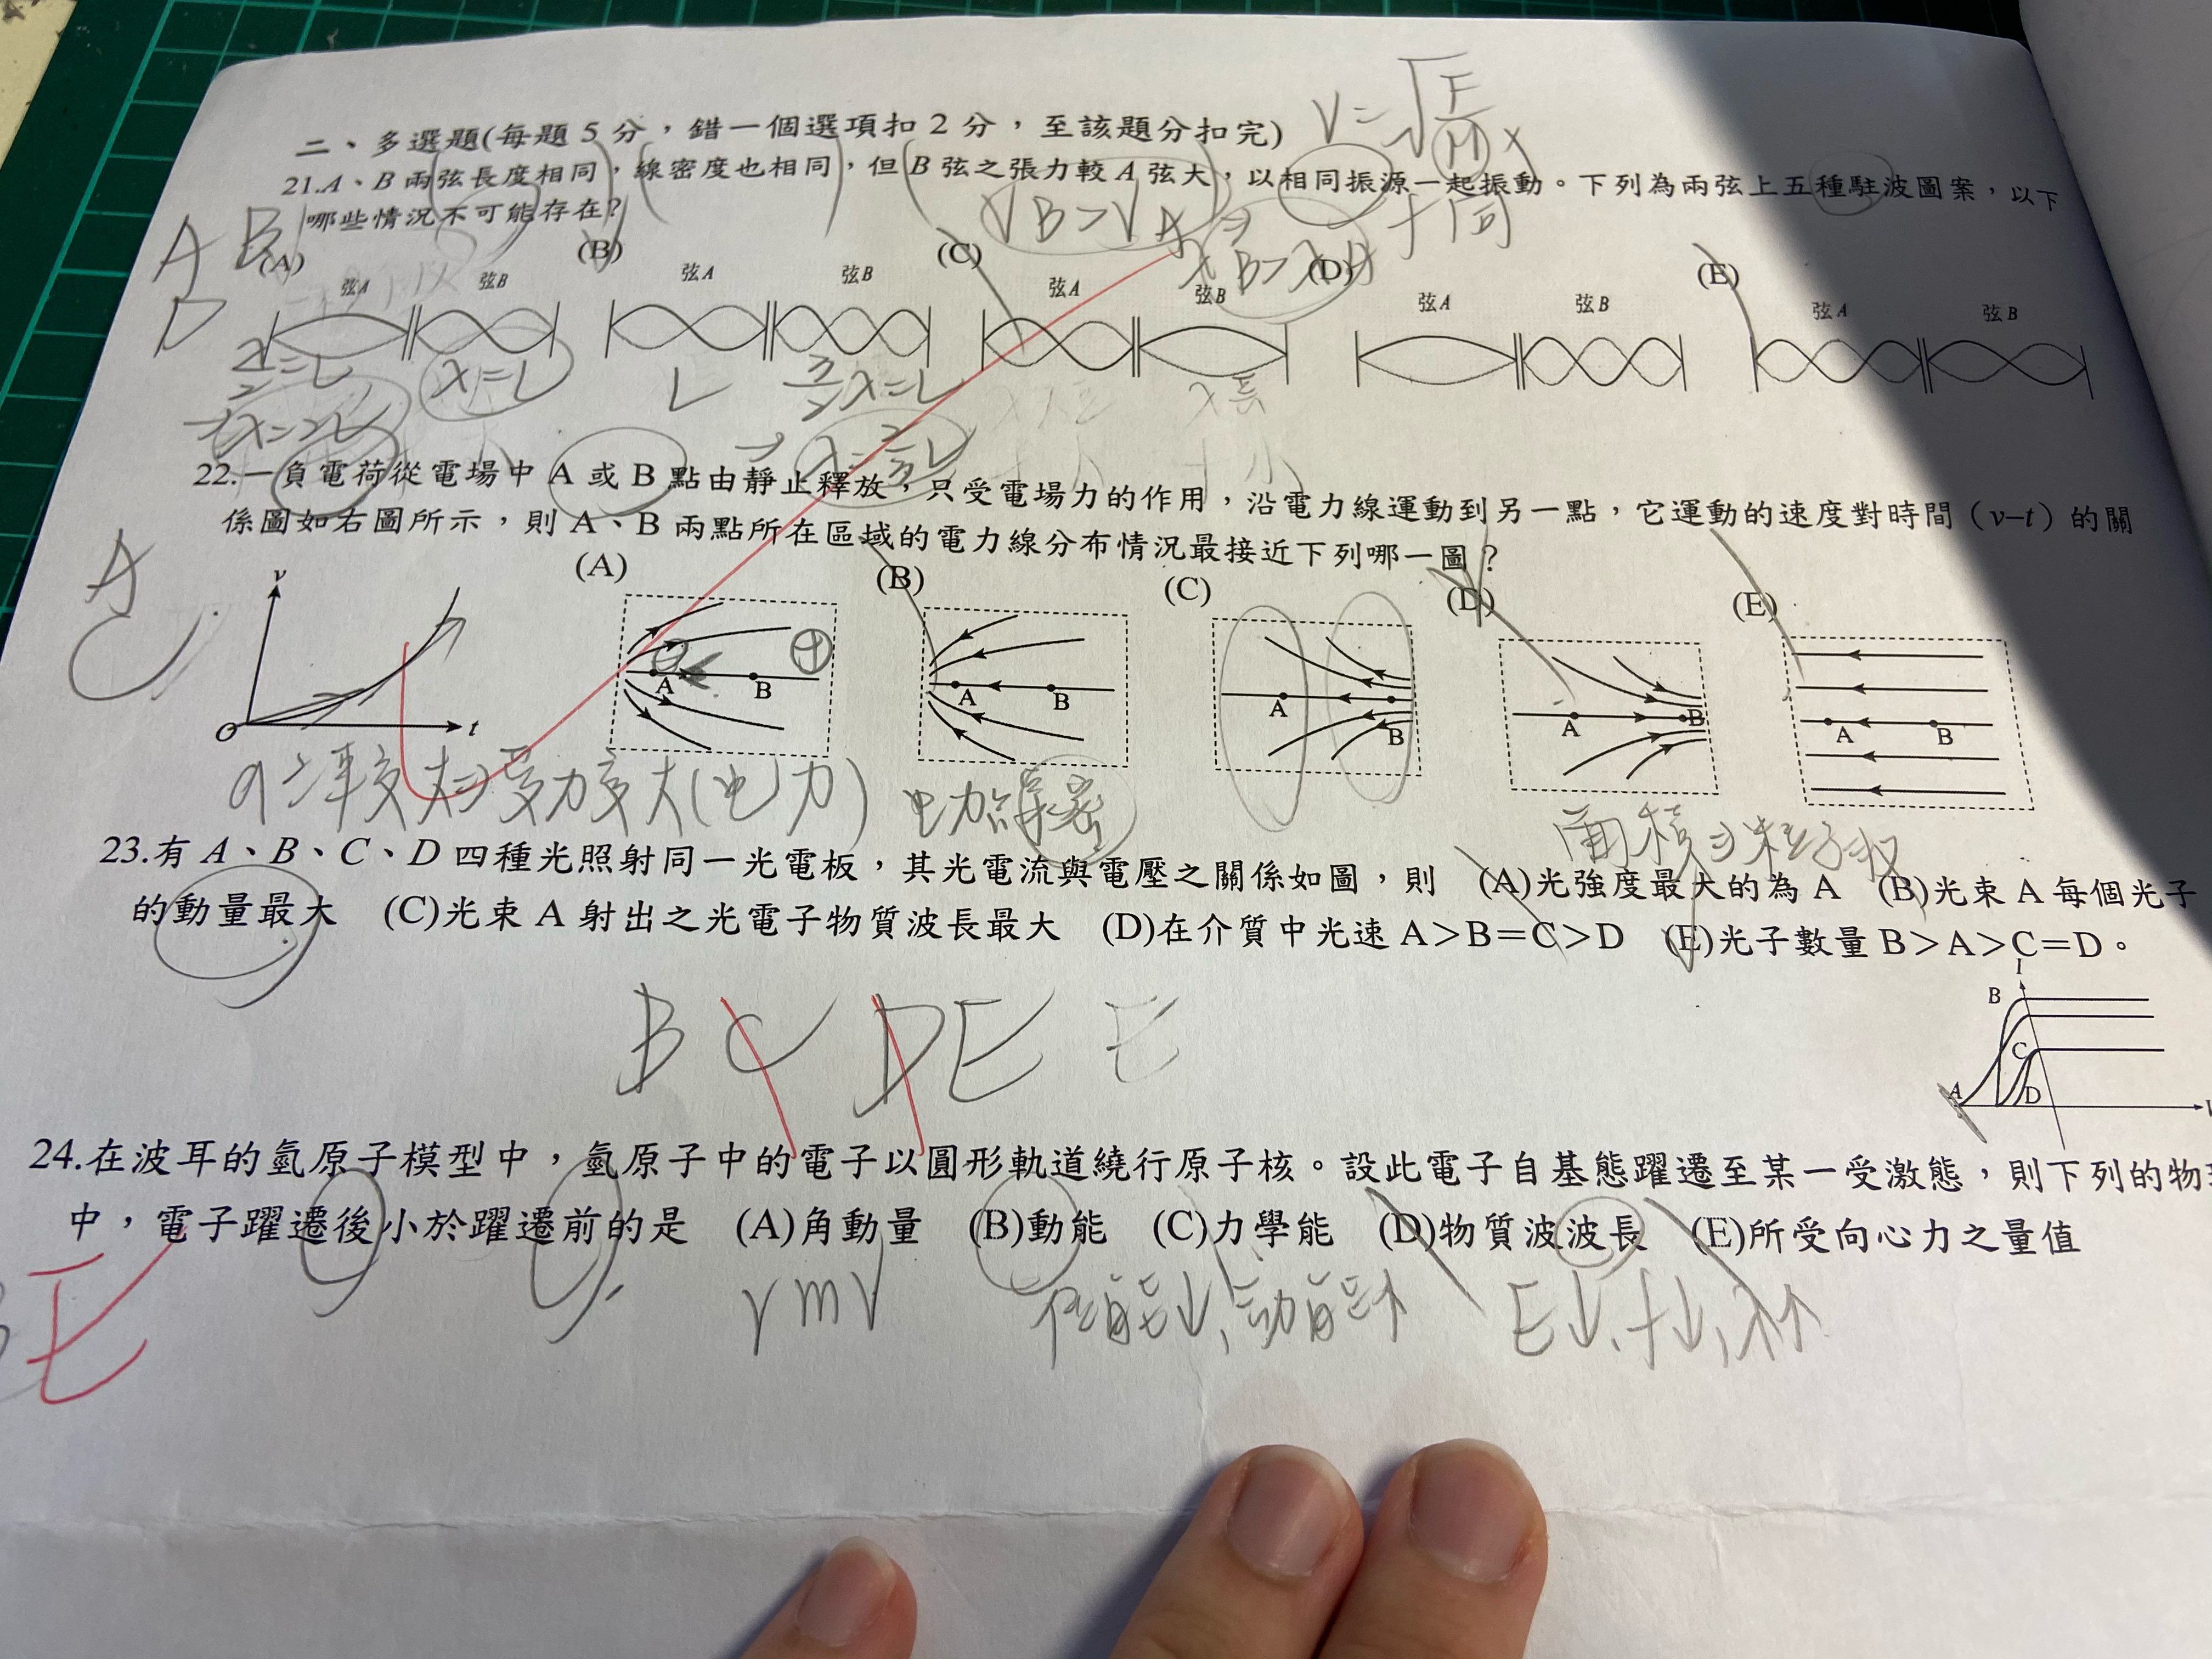 二、多選題(每題5分，錯一個選項扣2分，至該題分扣完)
V=√F/M
21.A、B兩弦長度相同，線密度也相同，但B弦之張力較A弦大，以相同振源一起振動。下列為兩弦上五種駐波圖案，以下
哪些情況不可能存在？
VB>VA
λB>λA
f同
A B D
(A) (B) (C) (D) (E)
弦A 弦B 弦A 弦B 弦A 弦B 弦A 弦B 弦A 弦B
λ/2=L
λ=2L
λ=L
L
3/2λ=L
λ=2/3L
λ長
22.一負電荷從電場中A或B點由靜止釋放，只受電場力的作用，沿電力線運動到另一點，它運動的速度對時間（v–t）的關
係圖如右圖所示，則A、B兩點所在區域的電力線分布情況最接近下列哪一圖？
A C
v
O
t
(A) (B) (C) (D) (E)
A B
A B
A B
A B
A B
面積
23.有A、B、C、D四種光照射同一光電板，其光電流與電壓之關係如圖，則 (A)光強度最大的為A (B)光束A每個光子
的動量最大 (C)光束A射出之光電子物質波長最大 (D)在介質中光速A>B=C>D (E)光子數量B>A>C=D。
B C D E E
I
B
C
A
D
24.在波耳的氫原子模型中，氫原子中的電子以圓形軌道繞行原子核。設此電子自基態躍遷至某一受激態，則下列的物
中，電子躍遷後小於躍遷前的是 (A)角動量 (B)動能 (C)力學能 (D)物質波波長 (E)所受向心力之量值
E
rmv
位能↓,動能↑
E↓,f↓,λ↑